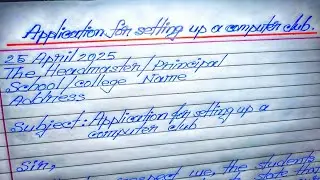 Application for setting up a computer club.
25 April 2025
The Headmaster/Principal
School/College Name
Address
Subject: Application for setting up a
computer club
Sir,
respect we, the students
state that